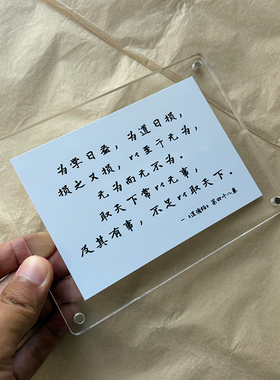 为学日益，为道日损，
损之又损，以至于无为，
无为而无不为。
取天下常以无事，
及其有事，不足以取天下。
—《道德经》第四十八章